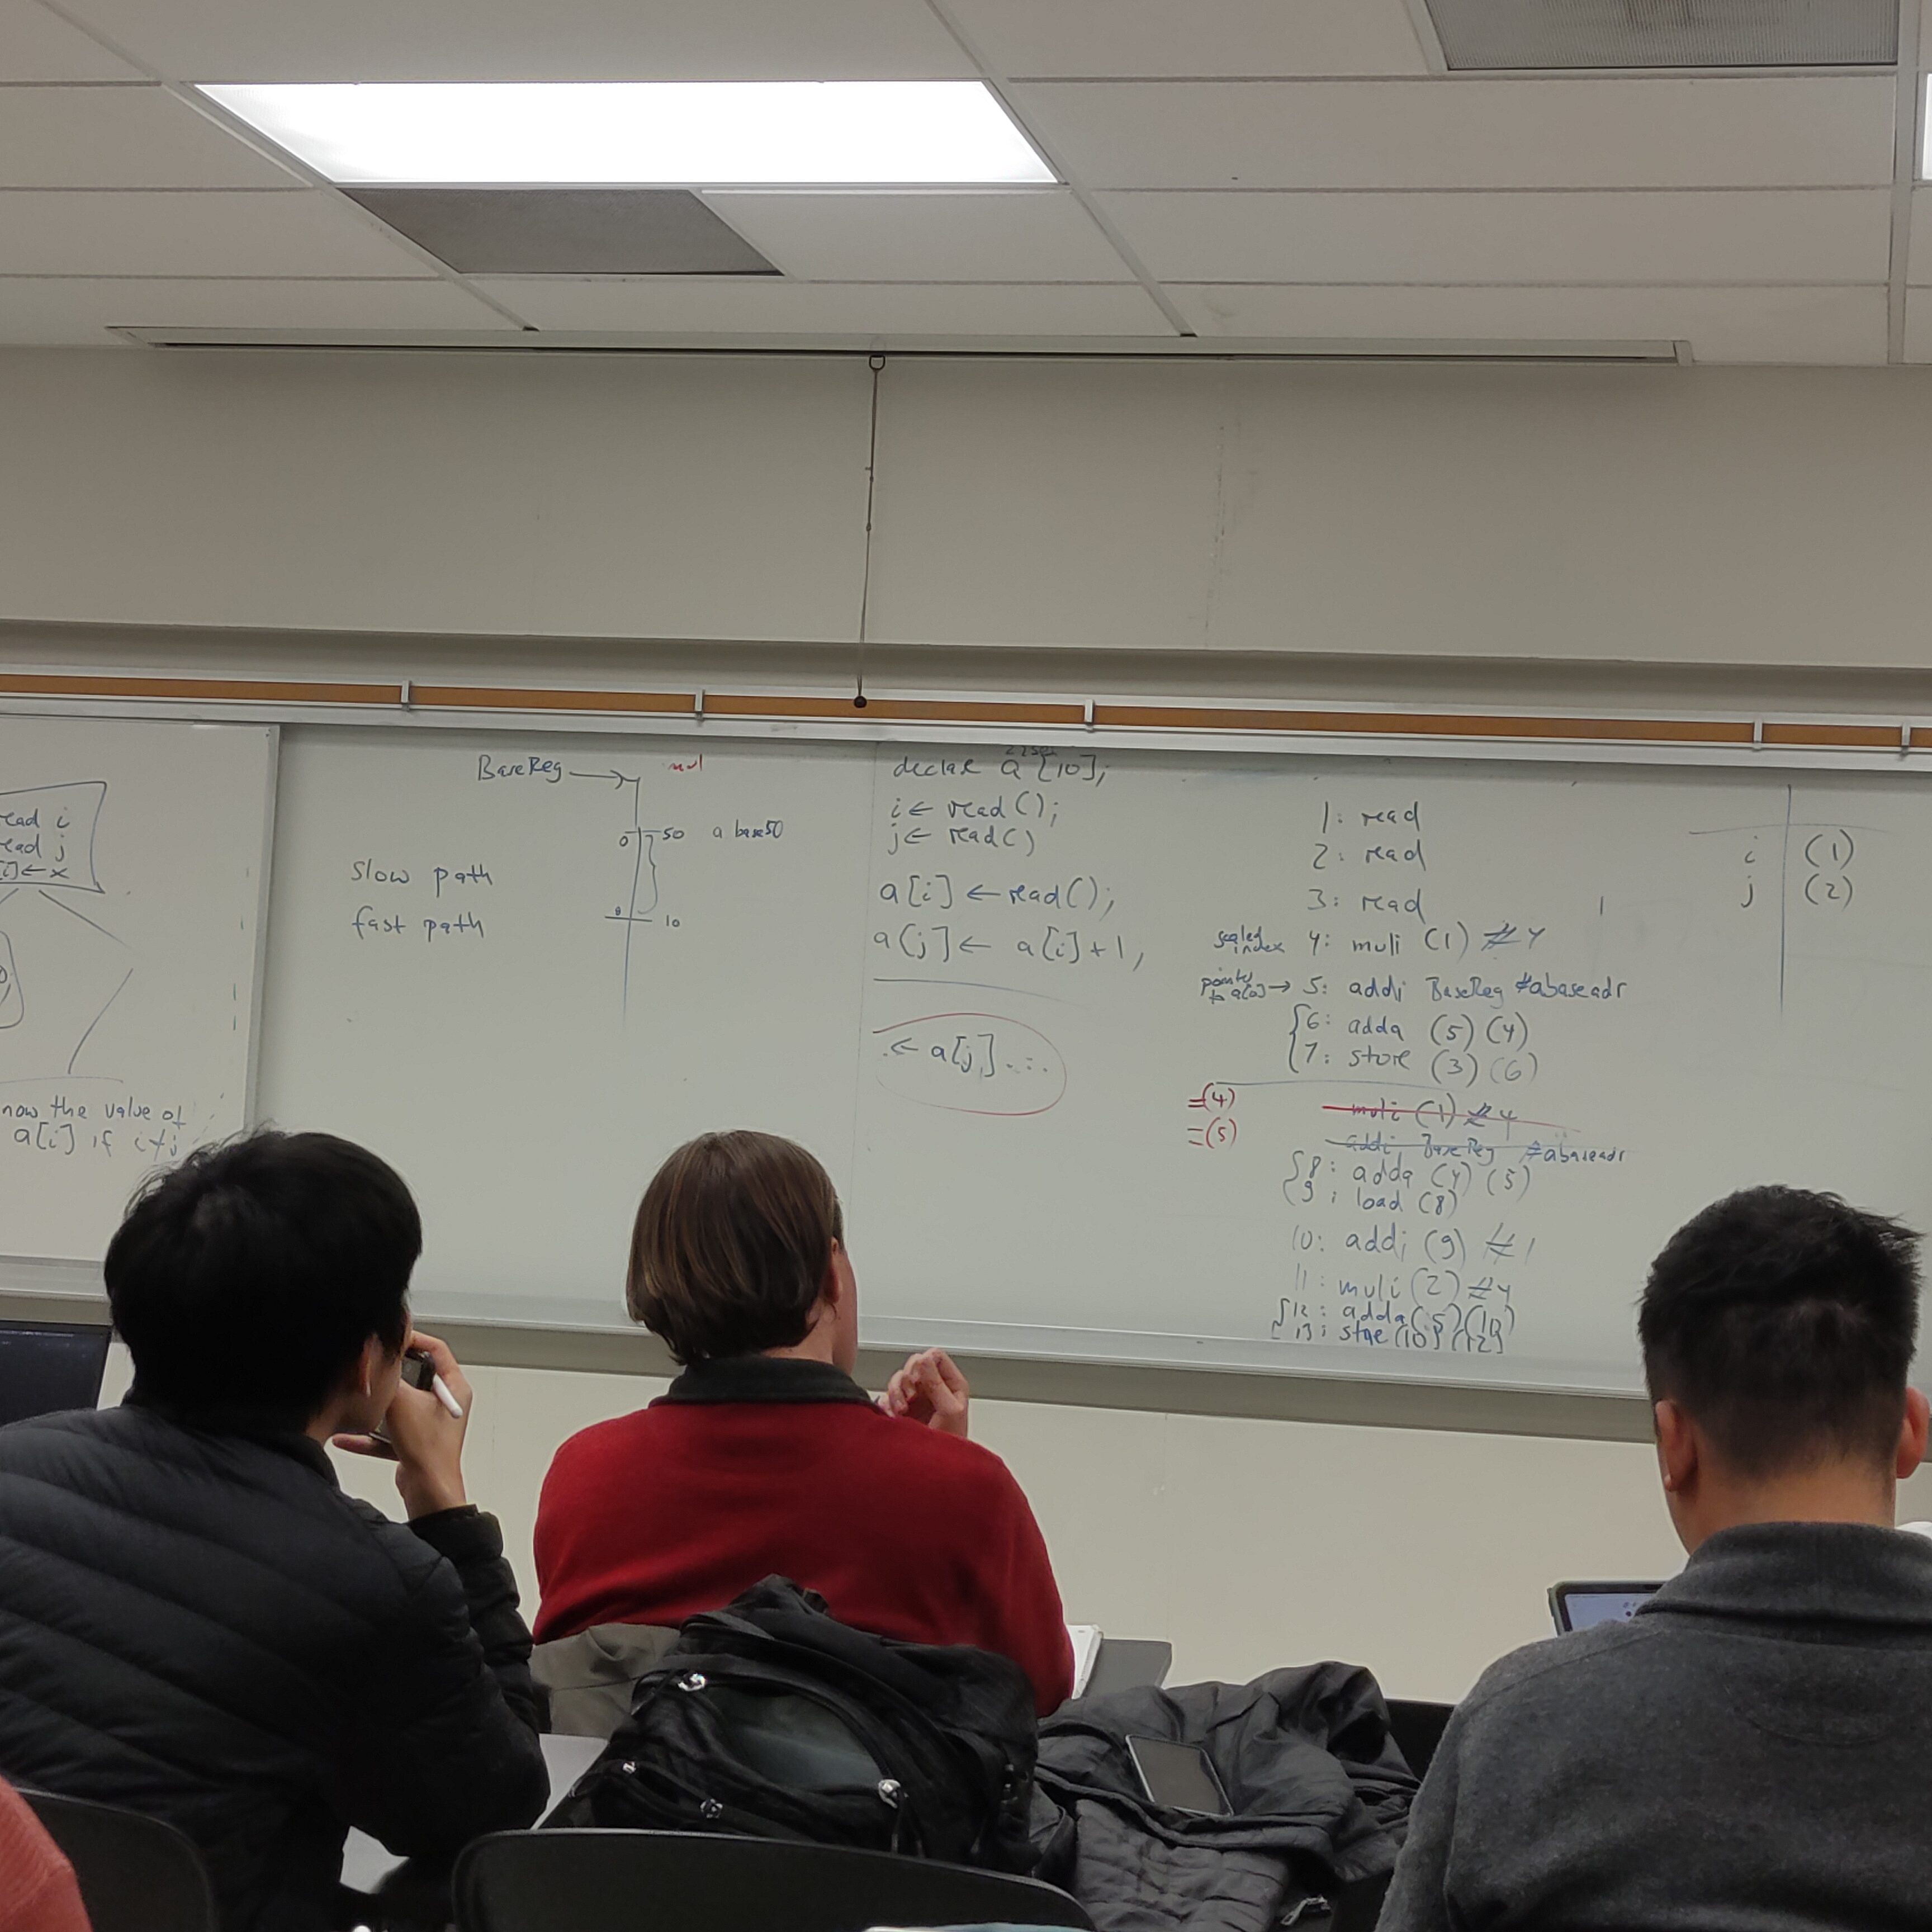 read i
read j
[i] ← x
now the value of
a[i] if i≠j
BaseReg →
mul
0
50 a base50
10
slow path
fast path
declare a[10];
i ← read();
j ← read()
a[i] ← read();
a[j] ← a[i]+1,
← a[j]...
1: read
2: read
3: read
scaled index 4: muli (1) #4
pointer to a[0] → 5: addi BaseReg #abaseadr
6: adda (5) (4)
7: store (3) (6)
=(4) muli (1) #4
=(5) addi BaseReg #abaseadr
8: adda (4) (5)
9: load (8)
10: addi (9) #1
11: muli (2) #4
12: adda (5)
13: store (10) (12)
i (1)
j (2)